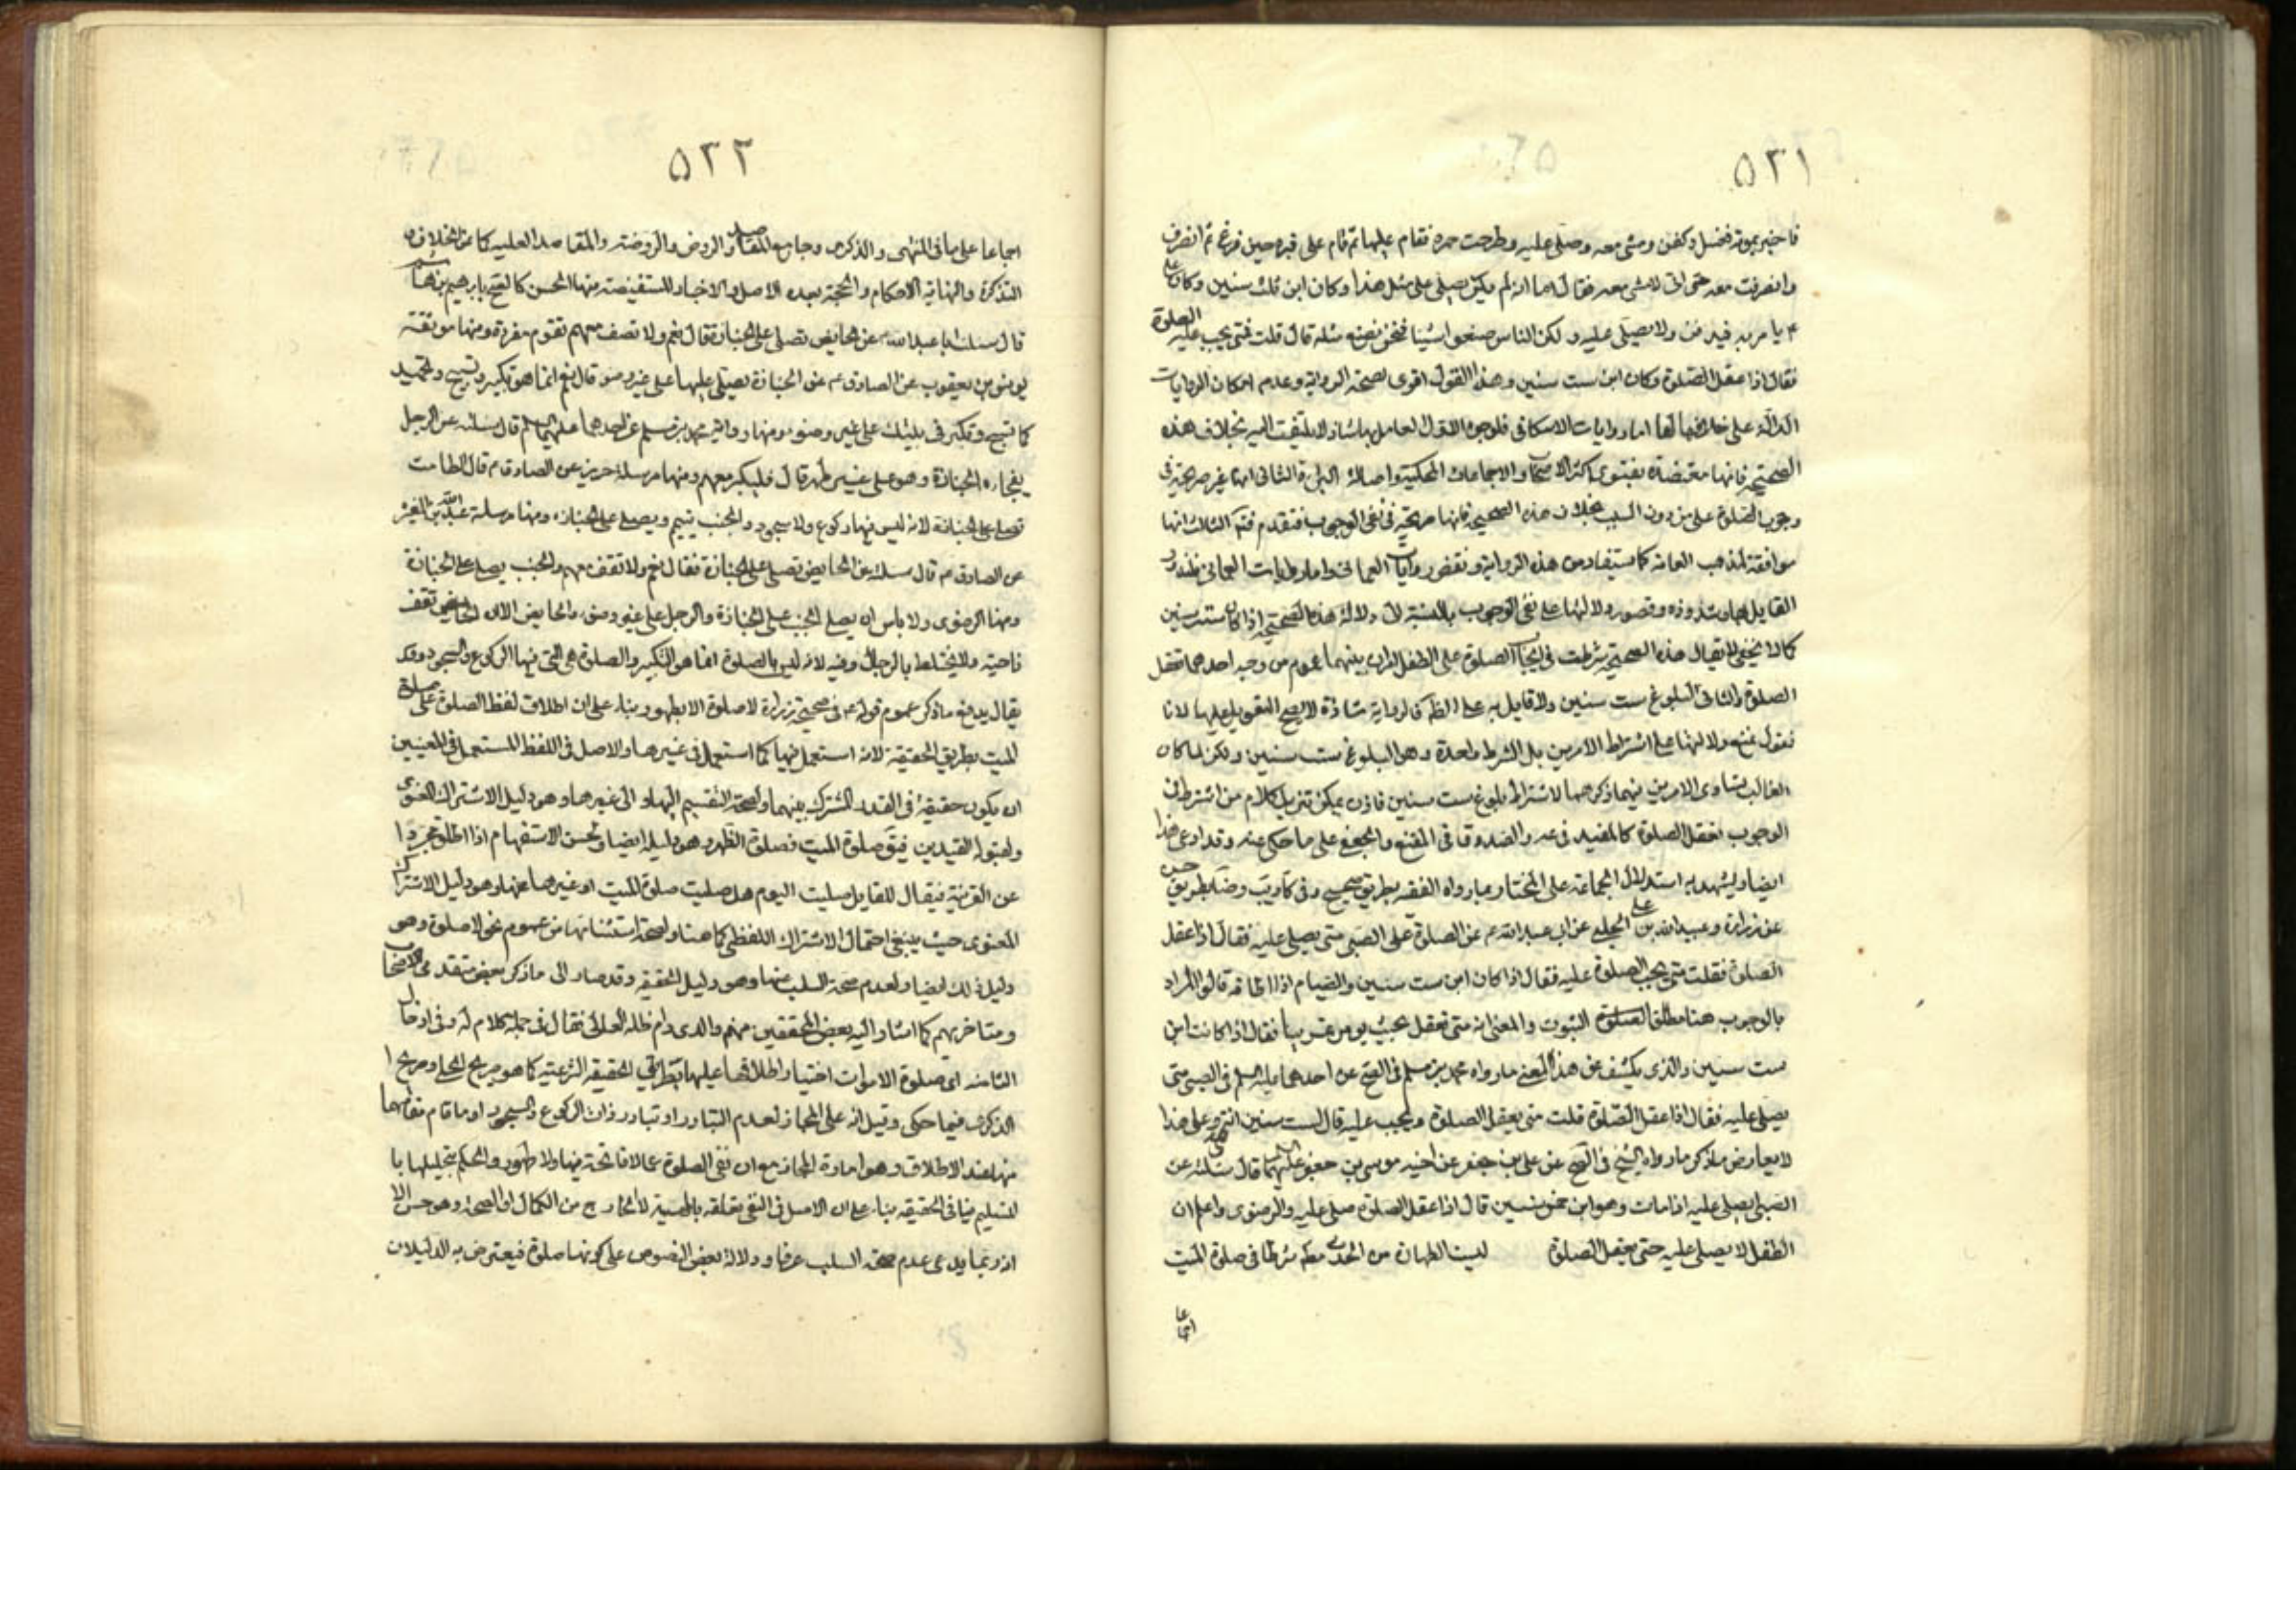 ۵۲۱
فاخبر بموته فغسل وكفن ومشى معه وصلى عليه وطرحت خمرة فقام عليها ثم قام على قبره حين فرغ ثم انصرف
وانصرفت معه حتى انى لامشى معه فقال اما انه لم يكن يصلى على مثل هذا وكان ابن ثلث سنين وكان على
ع يا مر به فيدفن ولا يصلى عليه ولكن الناس صنعوا شيئا فنحن نصنع مثله قال قلت فمتى يجب عليه الصلوة
فقال اذا عقل الصلوة وكان ابن ست سنين وهذا القول اقوى لصحة الرواية وعدم امكان الروايات
الدالة على خلافها لها اما روايات الاسكافى فلوجوه الاول العامل بها شاذ لا يلتفت اليه بخلاف هذه
الصحيحة فانها معتضدة بفتوى اكثر الاصحاب والاجماعات المحكية واصالة البراءة الثانى انها غير صريحة فى
وجوب الصلوة على من دون الست بخلاف هذه الصحيحة فانها صريحة فى نفى الوجوب فتقدم فتم الثالث انها
موافقة لمذهب العامة كما يستفاد من هذه الرواية وبعض روايات العمانى واما روايات العمانى فلندور
القايل بها وشذوذه وقصور دلالتها على نفى الوجوب بالنسبة الى دلالة هذه الصحيحة اذا كان ست سنين
كما لا يخفى لا يقال هذه الصحيحة شرطت فى ايجاب الصلوة على الطفل امران بينهما عموم من وجه احدهما تعقل
الصلوة والثانى البلوغ ست سنين ولا قايل به على الظ فالرواية شاذة لا يصح التعويل عليها لانا
نقول نمنع دلالتها على اشتراط الامرين بل الشرط واحدة وهو البلوغ ست سنين ولكن لما كان
الغالب تساوى الامرين فيهما ذكرهما لاشتراط بلوغ ست سنين فاذن يمكن تنزيل كلام من اشترط فى
الوجوب تعقل الصلوة كالمفيد فى عه والصدوق فى المقنع والجعفى على ما حكى عنه وقد ادعى هذا
ايضا ويشهد به استدلال الجماعة على المختار بما رواه الفقيه بطريق صحيح وفى كا ويب وصا بطريق حسن
عن زرارة وعبيد الله بن على الحلبى عن ابى عبد الله ع عن الصلوة على الصبى متى يصلى عليه فقال اذا عقل
الصلوة فقلت متى يجب الصلوة عليه فقال اذا كان ابن ست سنين والصيام اذا اطاقه قالوا المراد
بالوجوب هنا مطلق الثبوت والمعنى انه متى تعقل بحيث يومر تمرينا فقال اذا كانت ابن
ست سنين والذى يكشف عن هذا المعنى ما رواه محمد بن مسلم فى الصحيح عن احدهما عليهما السلم فى الصبى متى
يصلى عليه فقال اذا عقل الصلوة قلت متى يعقل الصلوة ويجب عليه قال لست سنين انتهى وعلى هذا
لا يعارض ما ذكر ما رواه الشيخ فى الصحيح عن على بن جعفر عن اخيه موسى بن جعفر عليهما قال سئلته عن
الصبى ايصلى عليه اذا مات وهو ابن خمس سنين قال اذا عقل الصلوة صلى عليه والرضوى واعلم ان
الطفل لا يصلى عليه حتى يعقل الصلوة ليست الطهارة من الحدث مط شرطا فى صلوة الميت
اجماعا
۵۲۲
اجماعا على ما فى المنتهى والذكرى وجامع المقاصد والروض والروضة والمقاصد العلية كما عن الخلاف و
التذكرة والنهاية الاحكام والحجة بعده الاصل والاخبار المستفيضة منها الحسن كالصحيح بابرهيم بن هاشم
قال سئلت ابا عبد الله ع عن الحايض تصلى على الجنازة قال نعم ولا تصف معهم تقوم مفردة ومنها موثقة
يونس بن يعقوب عن الصادق ع عن الجنازة يصلى عليها على غير وضوء قال نعم انما هو تكبير وتسبيح وتحميد
كما تسبح وتكبر فى بيتك على غير وضوء ومنها رواية محمد بن مسلم عن احدهما عليهما السلم قال سئلته عن الرجل
يفجاءه الجنازة وهو على غير طهر قال فليكبر معهم ومنها مرسلة حريز عن الصادق ع قال الطامث
تصلى على الجنازة لانه ليس فيها ركوع ولا سجود والجنب يتيمم ويصلى على الجنازه ومنها مرسلة عبد الله بن المغيرة
عن الصادق ع قال سئلته عن الحايض تصلى على الجنازة فقال نعم ولا تقف معهم والجنب يصلى على الجنازة
ومنها الرضوى ولا باس ان يصلى الجنب على الجنازة والرجل على غير وضوء والحايض الا ان الحايض تقف
ناحية ولا يختلط بالرجال وفيه لانه ليس بالصلوة انما هو التكبير والصلوة هى التى فيها الركوع والسجود وقد
يقال يدفع ما ذكر عموم قوله ع فى صحيحة زرارة لا صلوة الا بطهور بناء على ان اطلاق لفظ الصلوة على صلوة
الميت بطريق الحقيقة لانه استعمل فيها كما استعمل فى غيرها والاصل فى اللفظ المستعمل فى المعنيين
ان يكون حقيقة فى القدر المشترك بينهما ولصحة التقسيم اليها والى غيرها وهو دليل الاشتراك المعنوى
ولقبوله القيدين فيق صلوة الميت فصلوة الظهر وهو دليله ايضا ولحسن الاستفهام اذا اطلق مجردا
عن القرينة فيقال للقايل صليت اليوم هل صليت صلوة الميت او غيرها عنها وهو دليل الاشتراك
المعنوى حيث ينبغى احتمال الاشتراك اللفظى كما هنا ولصحة استثنائها من عموم نحو لا صلوة وهو
دليل ذلك ايضا ولعدم صحة السلب عنها وهو دليل الحقيقة وقد صار الى ما ذكر بعض متقدمى الاصحاب
ومتاخريهم كما اشار اليه بعض المحققين منهم والدى دام ظله العالى فقال فى جملة كلام له وفى ادخال
الثامنه اى صلوة الاموات اختيار اطلاقها عليها بطريق الحقيقة الشرعية كما هو صريح الحلى وصريح ا
الذكرى فيما حكى وقيل انه على المجاز لعدم التبادر او تبادر ذات الركوع والسجود او ما قام مقامها
منها عند الاطلاق وهو امارة المجاز مع ان نفى الصلوة عما لا فاتحة فيها ولا طهور والحكم بتحليلها با
لتسليم ينافى الحقيقة بناء على ان الاصل فى النفى تعلقه بالمهية لا الخارج من الكمال او الصحة وهو حسن الا
انه ربما يدعى عدم صحة السلب عرفا ودلالة بعض النصوص على كونها صلوة فيعترض به الدليلان